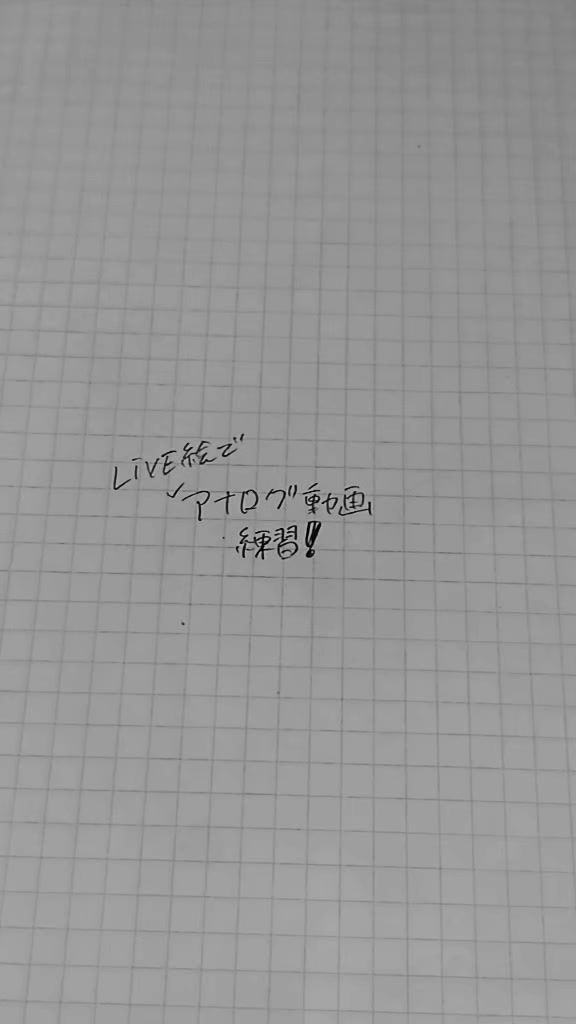 LIVE絵で
アナログ動画
練習!